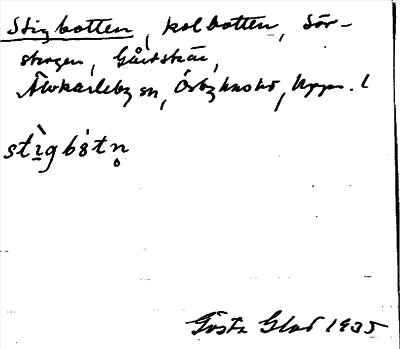 Stigbotten, kolbotten, Sör-
skogen, Gårdskär,
Älvkarleby sn, Örbyhus hd, Upps. l
stìgbòtn̥
Gösta Glad 1935